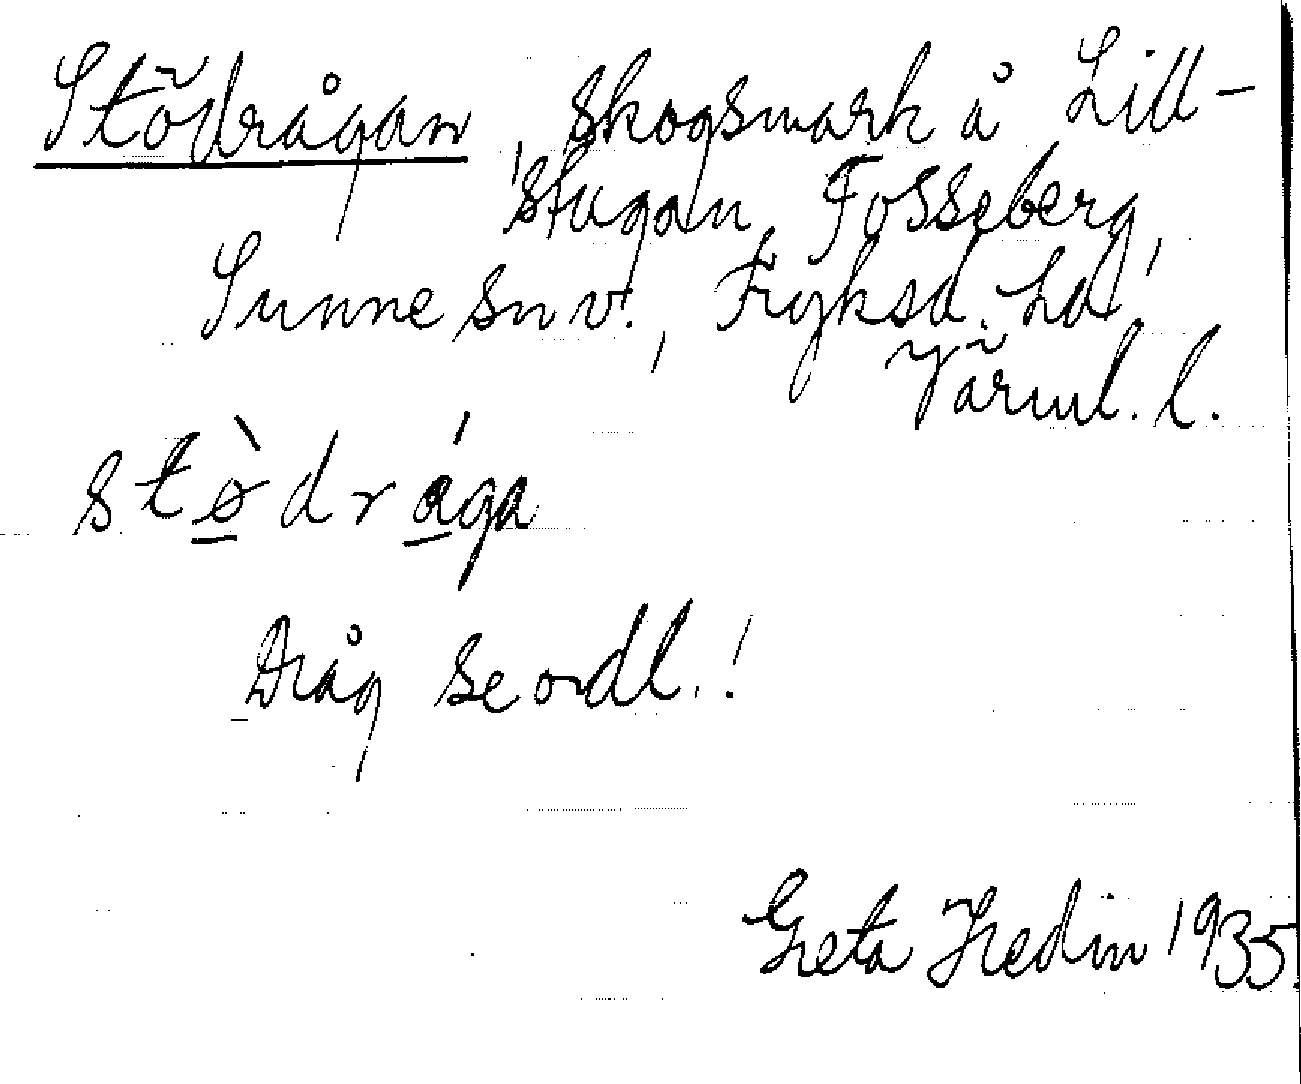 Stödrågan, skogsmark å Lill-
stugan, Fosseberg,
Sunne snv., Fryksd. hd,
Värml. l.
stødråga
Dråg se ordl.!
Greta Hedin 1935.